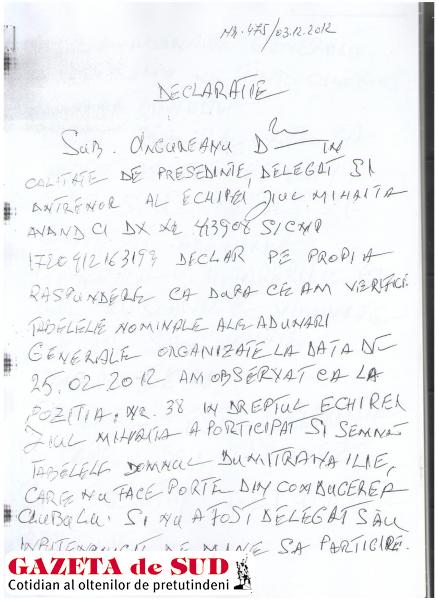 Nr. 475/03.12.2012
DECLARATIE
SUB. UNGUREANU D IN
CALITATE DE PRESEDINTE, DELEGAT SI
ANTRENOR AL ECHIPEI JIUL MIHAITA
AVAND CI DX NR 413908 SI CNP
1720912163199 DECLAR PE PROPIA
RASPUNDERE CA DUPA CE AM VERIFICAT
TABELELE NOMINALE ALE ADUNARI
GENERALE ORGANIZATE LA DATA DE
25.02.2012 AM OBSERVAT CA LA
POZITIA NR. 38 IN DREPTUL ECHIPEI
JIUL MIHAITA A PARTICIPAT SI SEMNAT
TABELELE DOMNUL DUMITRANA ILIE,
CARE NU FACE PARTE DIN CONDUCEREA
CLUBULUI SI NU A FOST DELEGAT SAU
DE MINE SA PARTICIPE.
GAZETA de SUD
Cotidian al oltenilor de pretutindeni